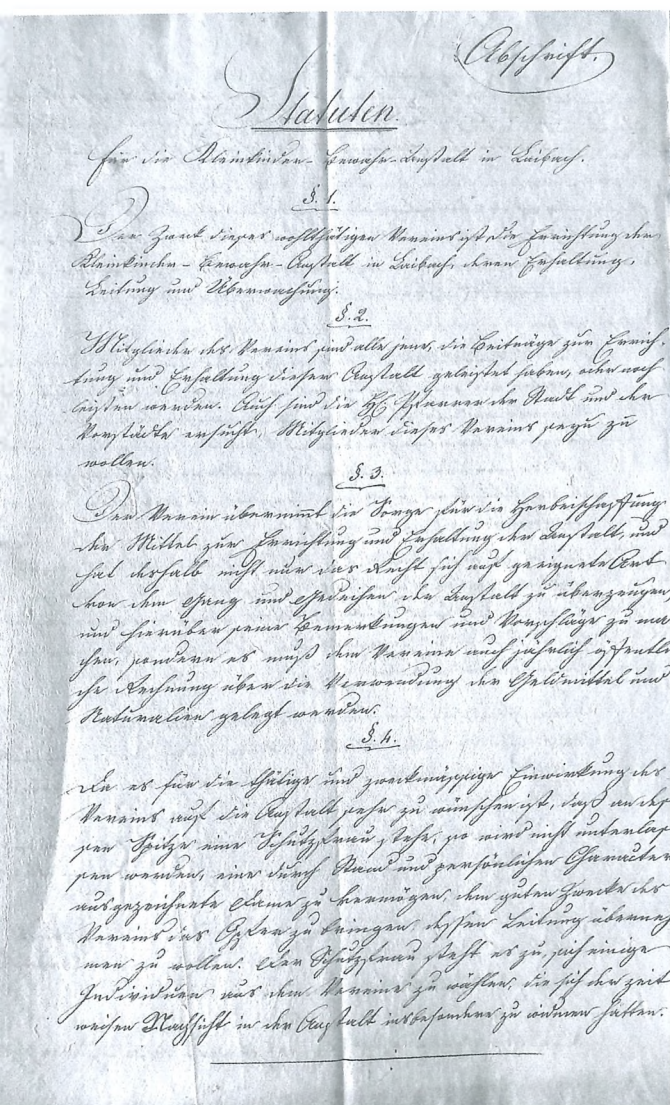 Abschrift.
Statuten.
für die Kleinkinder-Bewahr-Anstalt in Laibach.
§. 1.
Der Zweck dieses wohlthätigen Vereins ist die Errichtung der
Kleinkinder-Bewahr-Anstalt in Laibach, deren Erhaltung,
Leitung und Überwachung.
§. 2.
Mitglieder des Vereins sind alle jene, die Beiträge zur Errich-
tung und Erhaltung dieser Anstalt geleistet haben, oder noch
leisten werden. Auch sind die H: Pfarrer der Stadt und der
Vorstädte ersucht, Mitglieder dieses Vereins seyn zu
wollen.
§. 3.
Der Verein übernimmt die Sorge für die Herbeischaffung
der Mittel zur Errichtung und Erhaltung der Anstalt, und
hat deshalb nicht nur das Recht sich auf geeignete Art
von dem Gang und Gedeihen der Anstalt zu überzeugen,
und hierüber seine Bemerkungen und Vorschläge zu ma
chen, sondern es muß dem Vereine auch jährlich öffentli
che Rechnung über die Verwendung der Geldmittel und
Naturalien gelegt werden.
§. 4.
Da es für die thätige und zweckmässige Einwirkung des
Vereins auf die Anstalt sehr zu wünschen ist, daß an des
sen Spitze eine Schutzfrau stehe, so wird nicht unterlas
sen werden, eine durch Stand und persönlichen Character
ausgezeichnete Dame zu vermögen, dem guten Zwecke des
Vereins das Opfer zu bringen, dessen Leitung überneh
men zu wollen. Der Schutzfrau steht es zu, sich einige
Individuen aus dem Vereine zu wählen, die sich der zeit
weisen Nachsicht in der Anstalt insbesondere zu widmen hätten.